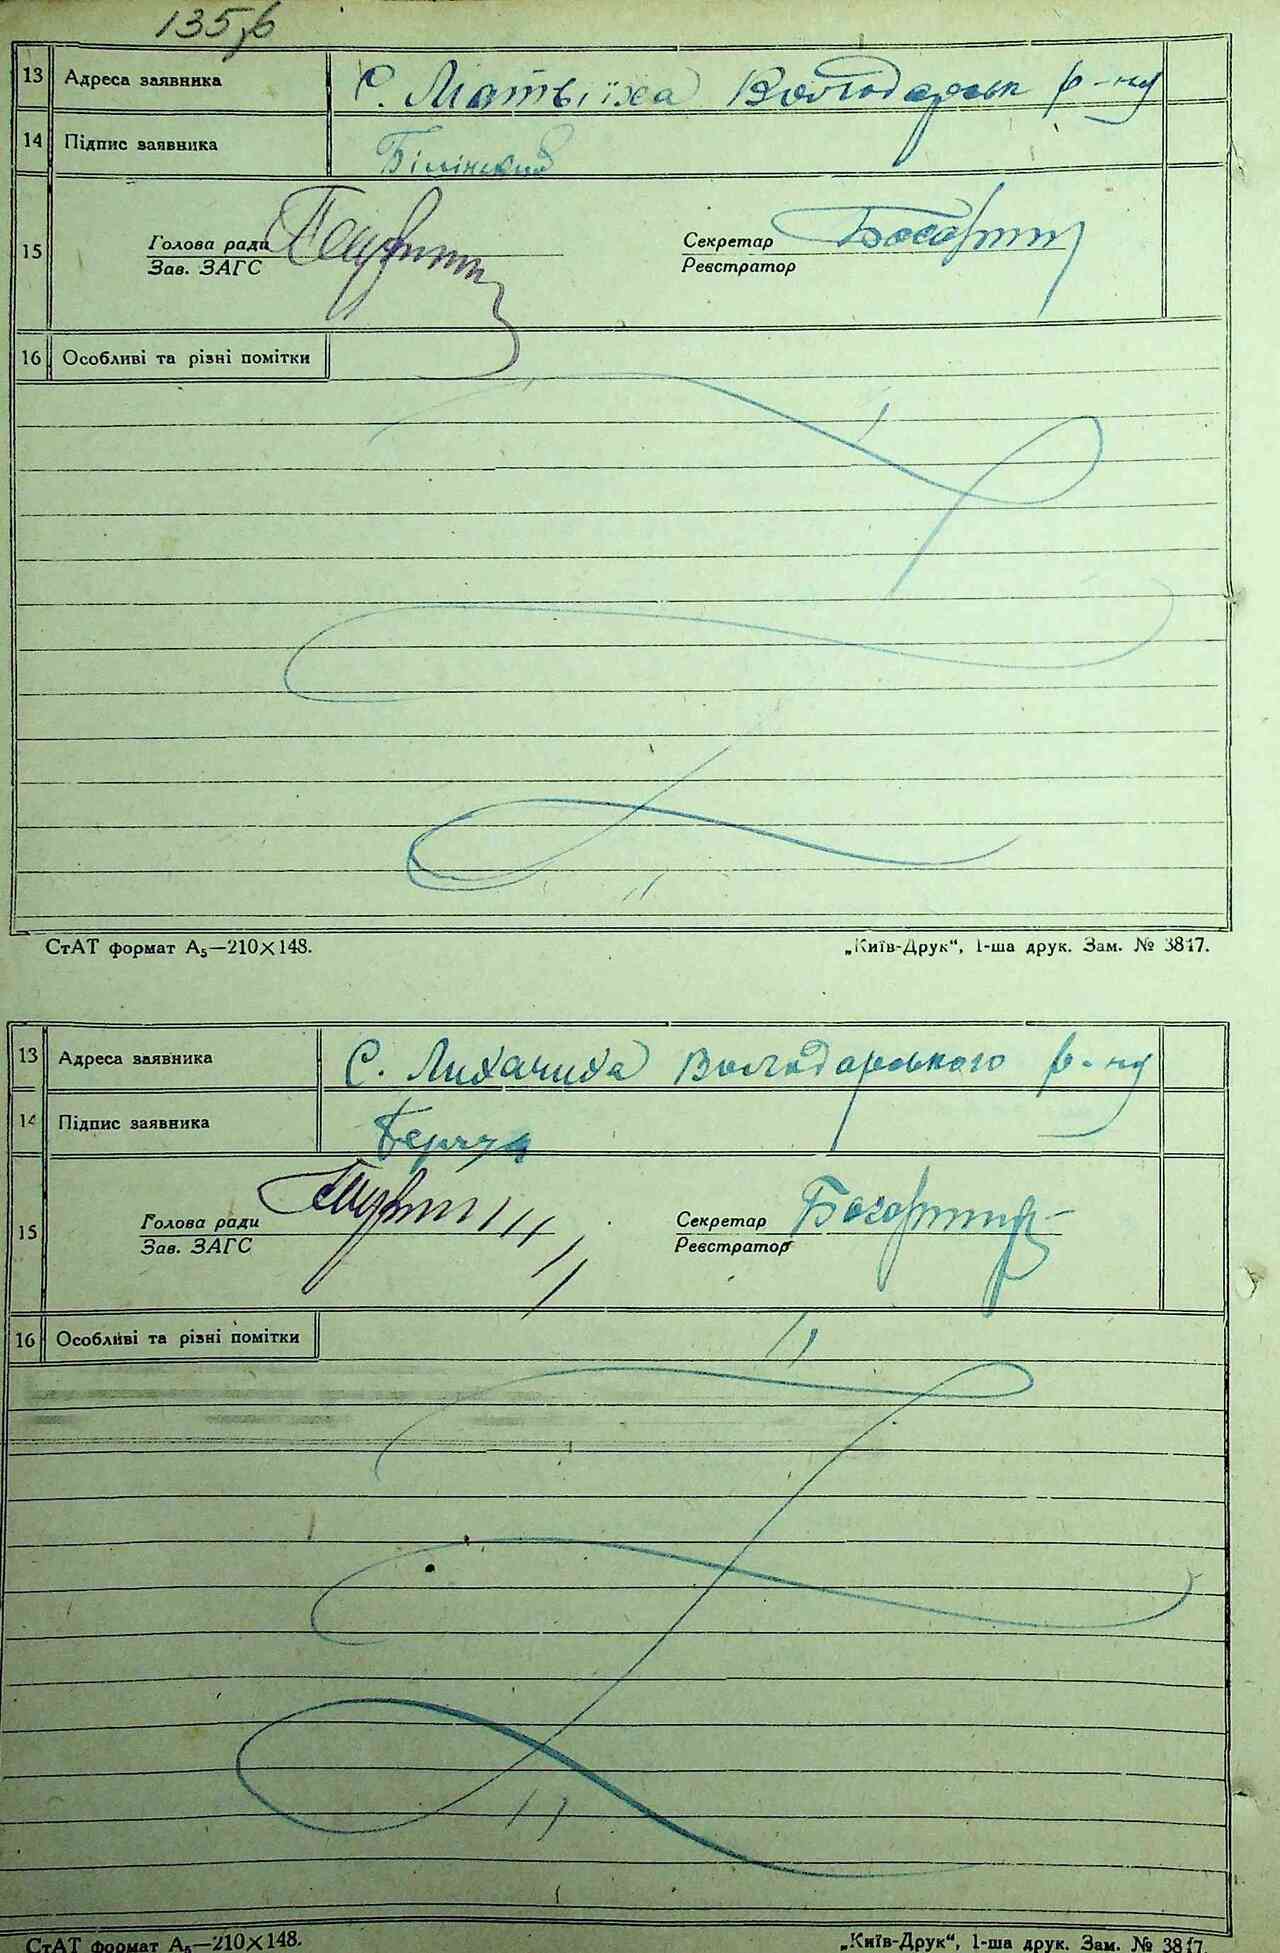 135,6
13 Адреса заявника С. Матвіїха Володарськ р-ну
14 Підпис заявника Білінский
15 Голова ради Секретар
Зав. ЗАГС Реєстратор
16 Особливі та різні помітки
СтАТ формат А₅—210×148. „Київ-Друк“, 1-ша друк. Зам. № 3847.
13 Адреса заявника С. Лихачиха Володарського р-ну
14 Підпис заявника
15 Голова ради Секретар
Зав. ЗАГС Реєстратор
16 Особливі та різні помітки
СтАТ формат А₅—210×148. „Київ-Друк“, 1-ша друк. Зам. № 3847.